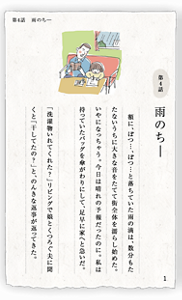 第4話　雨のちー
第4話
雨のちー
頬に、ぽつ…、ぽつ…と落ちていた雨の滴は数分もた
たないうちに大きな音をたてて街全体を濡らし始めた。
いやになっちゃう。今日は晴れの予報だったのに。私は
持っていたバッグを傘がわりにして、足早に家へと急いだ。
「洗濯物いれてくれた？」リビングで娘とくつろぐ夫に聞
くと「干してたの？」と、のんきな返事が返ってきた。
1